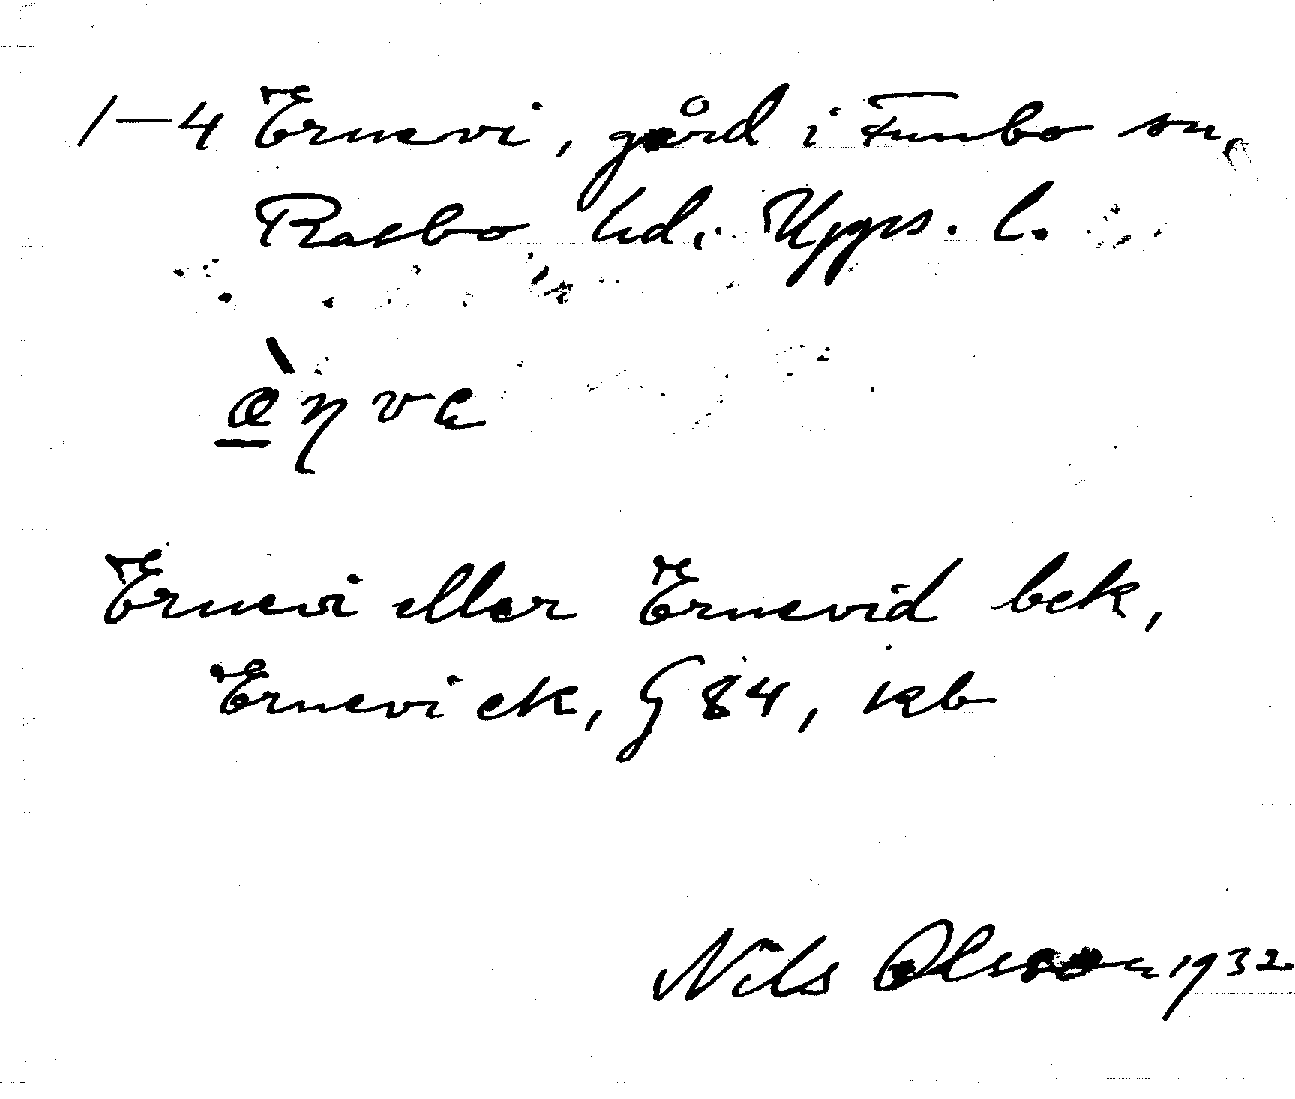 1-4 Ernevi, gård i Funbo sn,
Rasbo hd. Upps. l.
æ̀ŋve
Ernevi eller Ernevid bek,
Ernevi ek, G 84, kb
Nils Olsson 1932